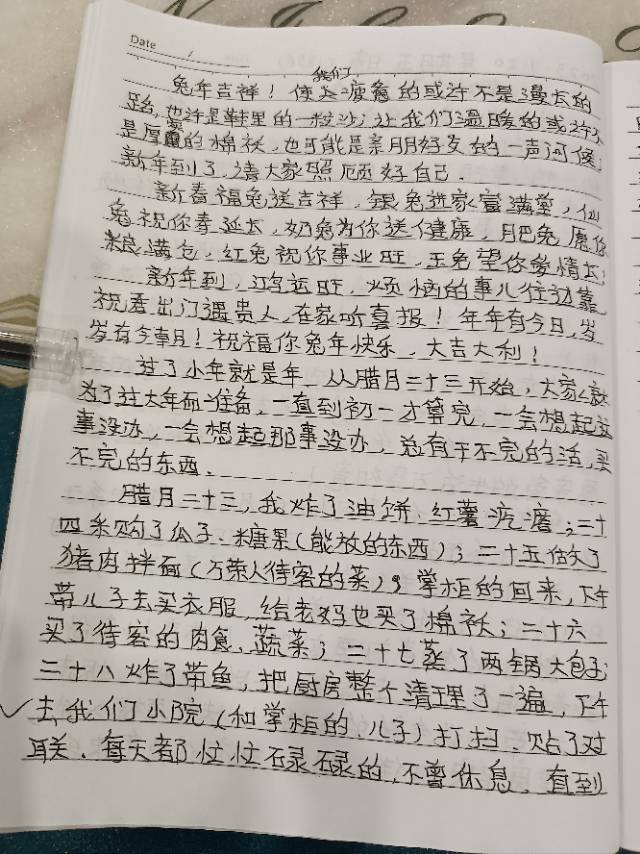 Date /
我们
兔年吉祥！使人疲惫的或许不是漫长的
路，也许是鞋里的一粒沙；让我们温暖的或许不
是厚重的棉袄，也可能是亲朋好友的一声问候；
新年到了，请大家照顾好自己．
新春福兔送吉祥，银兔进家富满堂，仙
兔祝你寿延长，奶兔为你送健康，肥兔愿你
粮满仓，红兔祝你事业旺，玉兔望你爱情长；
新年到，鸿运旺，烦恼的事儿往边靠，
祝君出门遇贵人，在家听喜报！年年有今日，岁
岁有今朝！祝福你兔年快乐，大吉大利！
过了小年就是年，从腊月二十三开始，大家就
为了过大年而准备，一直到初一才算完，一会想起这
事没办，一会想起那事没办，总有干不完的活，买
不完的东西．
腊月二十三，我炸了油饼、红薯疙瘩；二十
四采购了瓜子、糖果（能放的东西）；二十五做了
猪肉拌面（万荣人待客的菜）；掌柜的回来，下午
带儿子去买衣服，给老妈也买了棉袄；二十六
买了待客的肉食、蔬菜；二十七蒸了两锅大包子；
二十八炸了带鱼，把厨房整个清理了一遍，下午
去我们小院（和掌柜的、儿子）打扫、贴了对
联．每天都忙忙碌碌的，不曾休息，直到